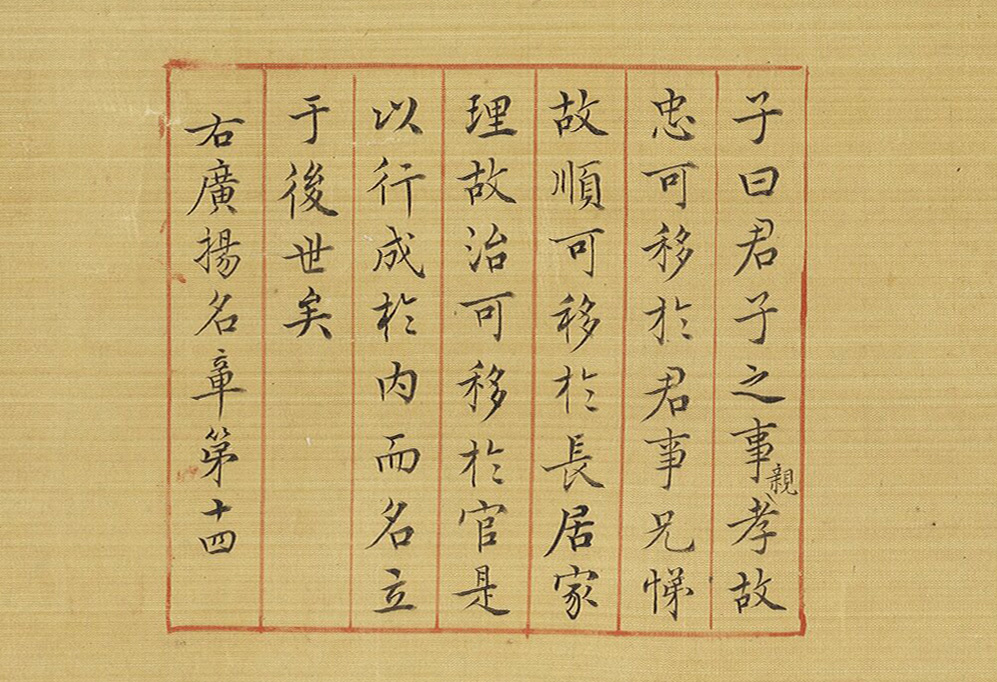 子曰君子之事親孝故
忠可移於君事兄悌
故順可移於長居家
理故治可移於官是
以行成於内而名立
于後世矣
右廣揚名章第十四